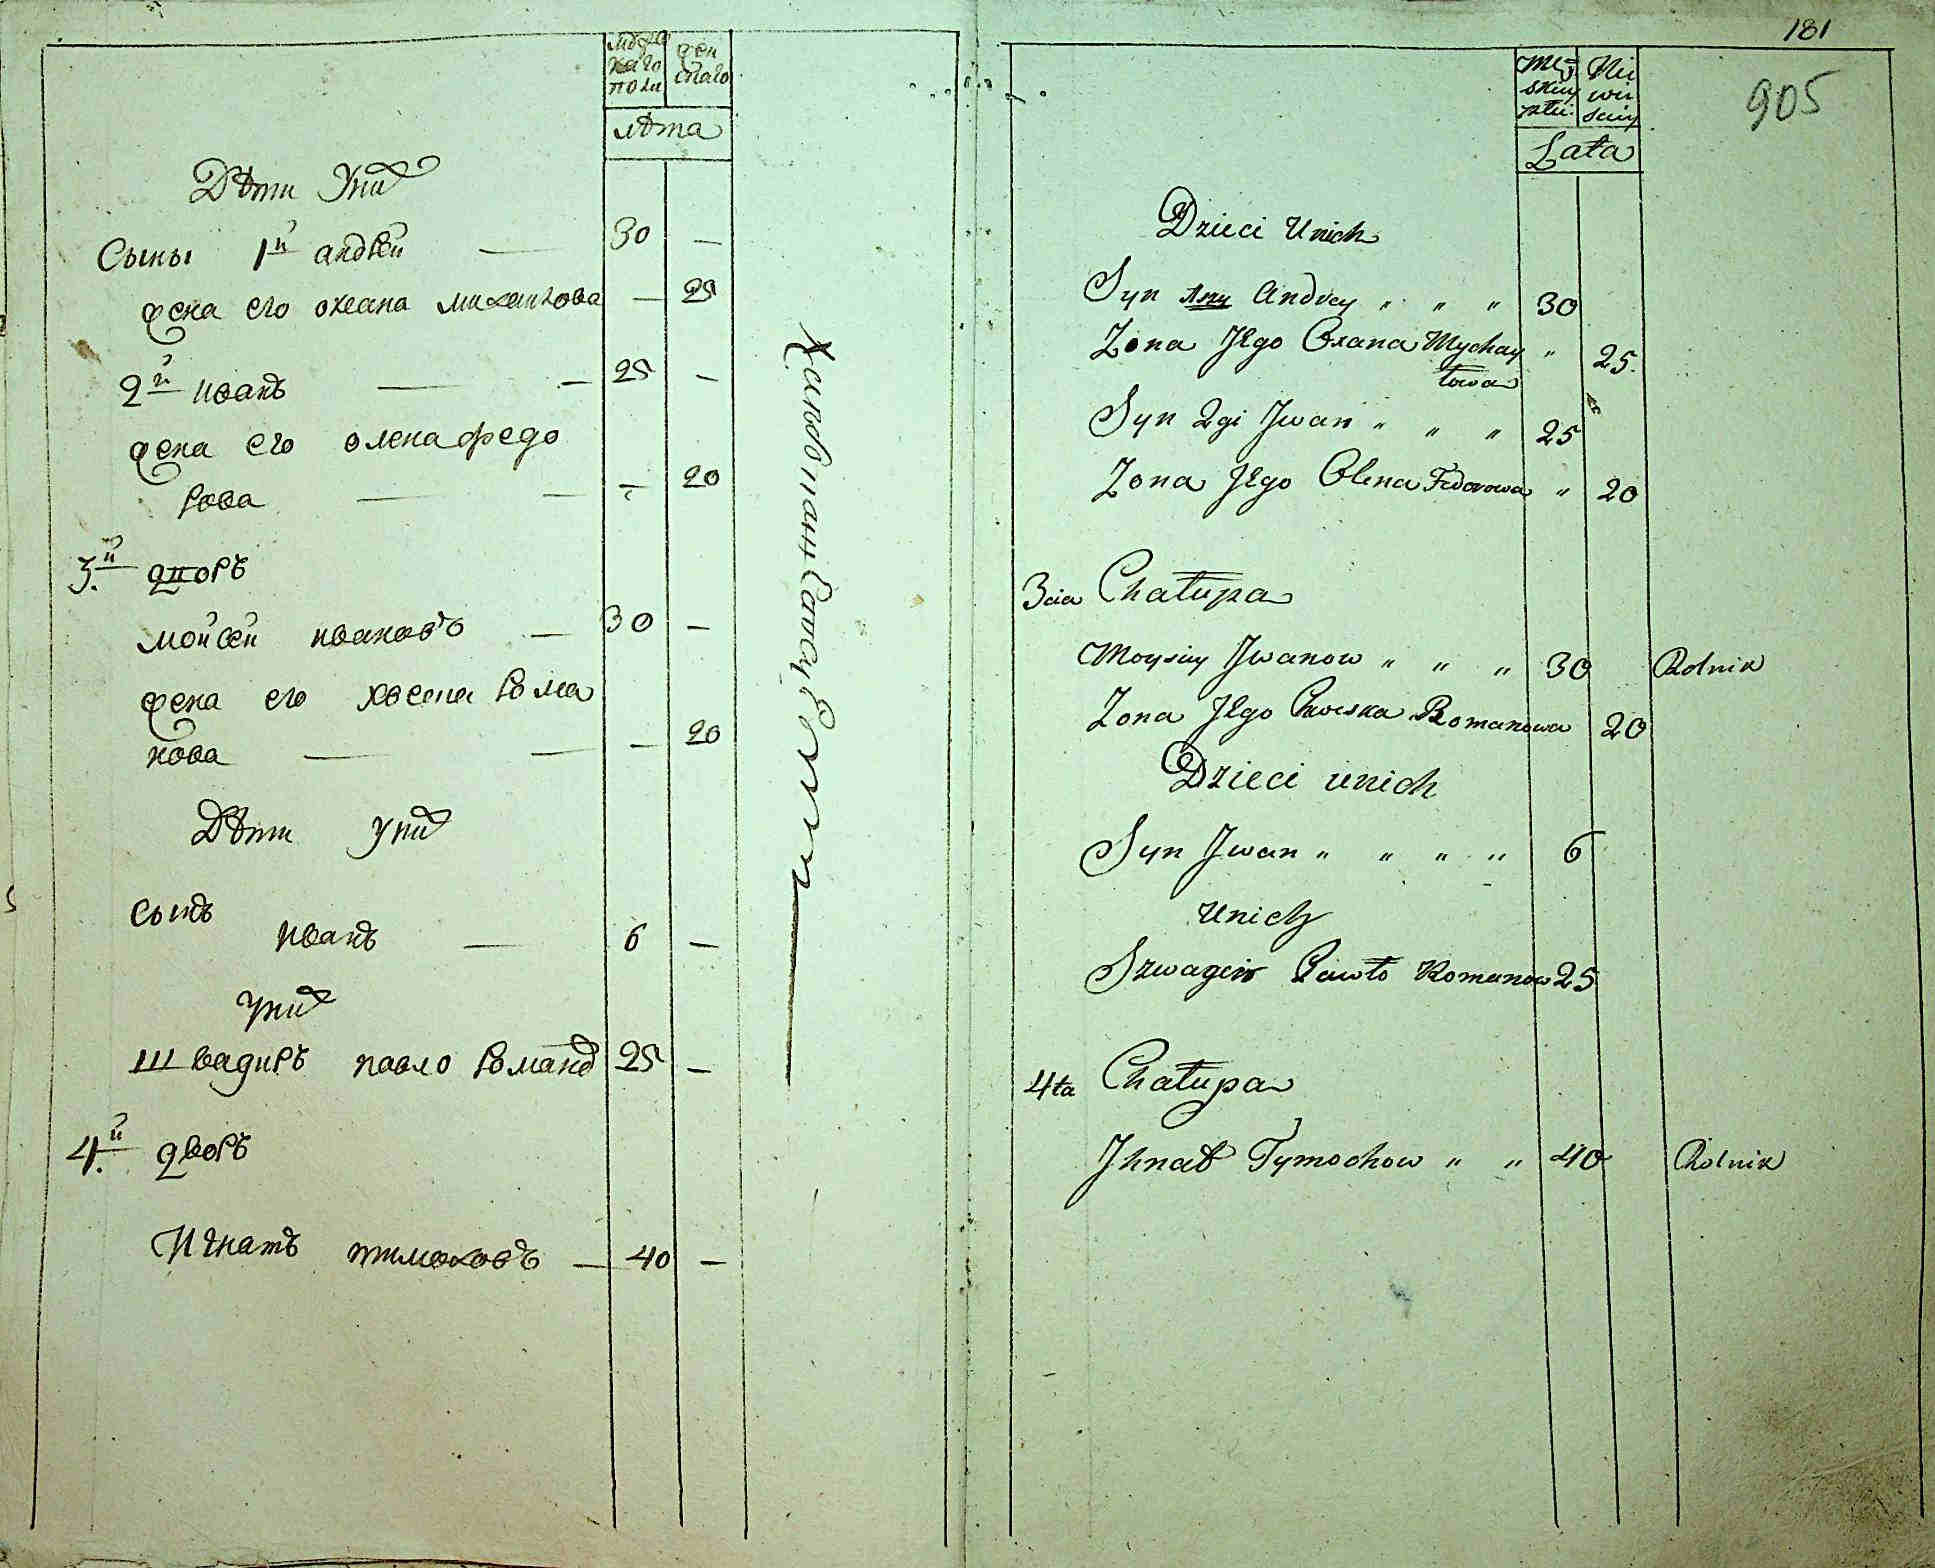 мужскаго полу женскаго
лѣта
Дѣти У них
Сыны 1й андрей — 30 —
жена его оксана михаилова — 25
2й иванъ — — 25 —
жена его олена федо
рова — — — 20
3.й дворъ
мойсей ивановъ — 30 —
жена его хвеска рома
нова — — — 20
Дѣти У них
Сынъ
иванъ — 6 —
У них
швагиръ павло романов 25 —
4.й дворъ
Игнатъ тимоховъ — 40 —
181
905
Męzkiey płci Niewiesciey
Lata
Dzieci Unich
Syn 1szy Andrey " " " 30
Zona Jego Oxana Mychay " 25.
łowa
Syn 2gi Jwan " " " 25
Zona Jego Olena Fedorowa " 20
3cia Chałupa
Moysiey Jwanow " " " 30 Rolnik
Zona Jego Chweska Romanowa 20
Dzieci unich
Syn Jwan " " " " 6
Unich
Szwagier Pawło Romanow 25
4ta Chałupa
Jhnat Tymochow " " 40 Rolnik